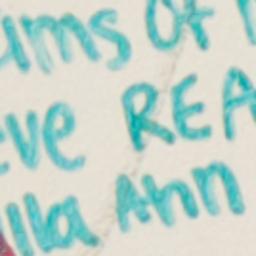 ums Of
eve REA
lla Ann